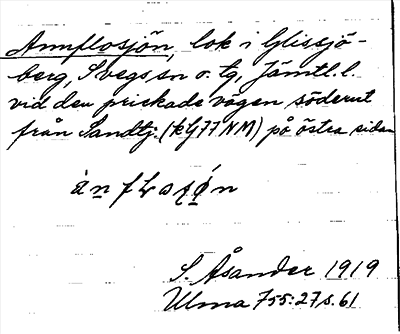 Annflosjön, lok i Glissjö-
berg, Svegs sn o. tg, Jämtl. l.
vid den prickade vägen söderut
från Sandtj. (k G77 NM) på östra sidan
S. Åsander 1919
Ulma 755:27 s. 61